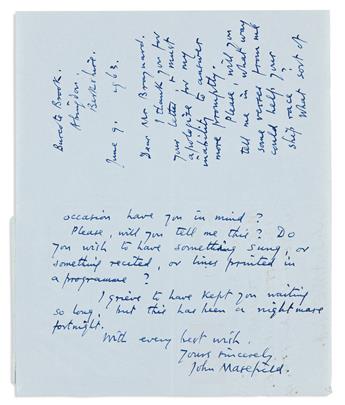 Burcote Brook.
Abingdon.
Berkshire.
June 9. 1963.
Dear Mr Braynard.
I thank you for
your letter, & must
apologise for my
inability to answer
more promptly.
Please, will you
tell me in what way
some verses from me
could help your
ship race?
What sort of
occasion have you in mind?
Please, will you tell me this? Do
you wish to have something sung, or
something recited, or lines printed in
a programme?
I grieve to have kept you waiting
so long, but this has been a nightmare
fortnight.
With every best wish.
Yours sincerely
John Masefield.